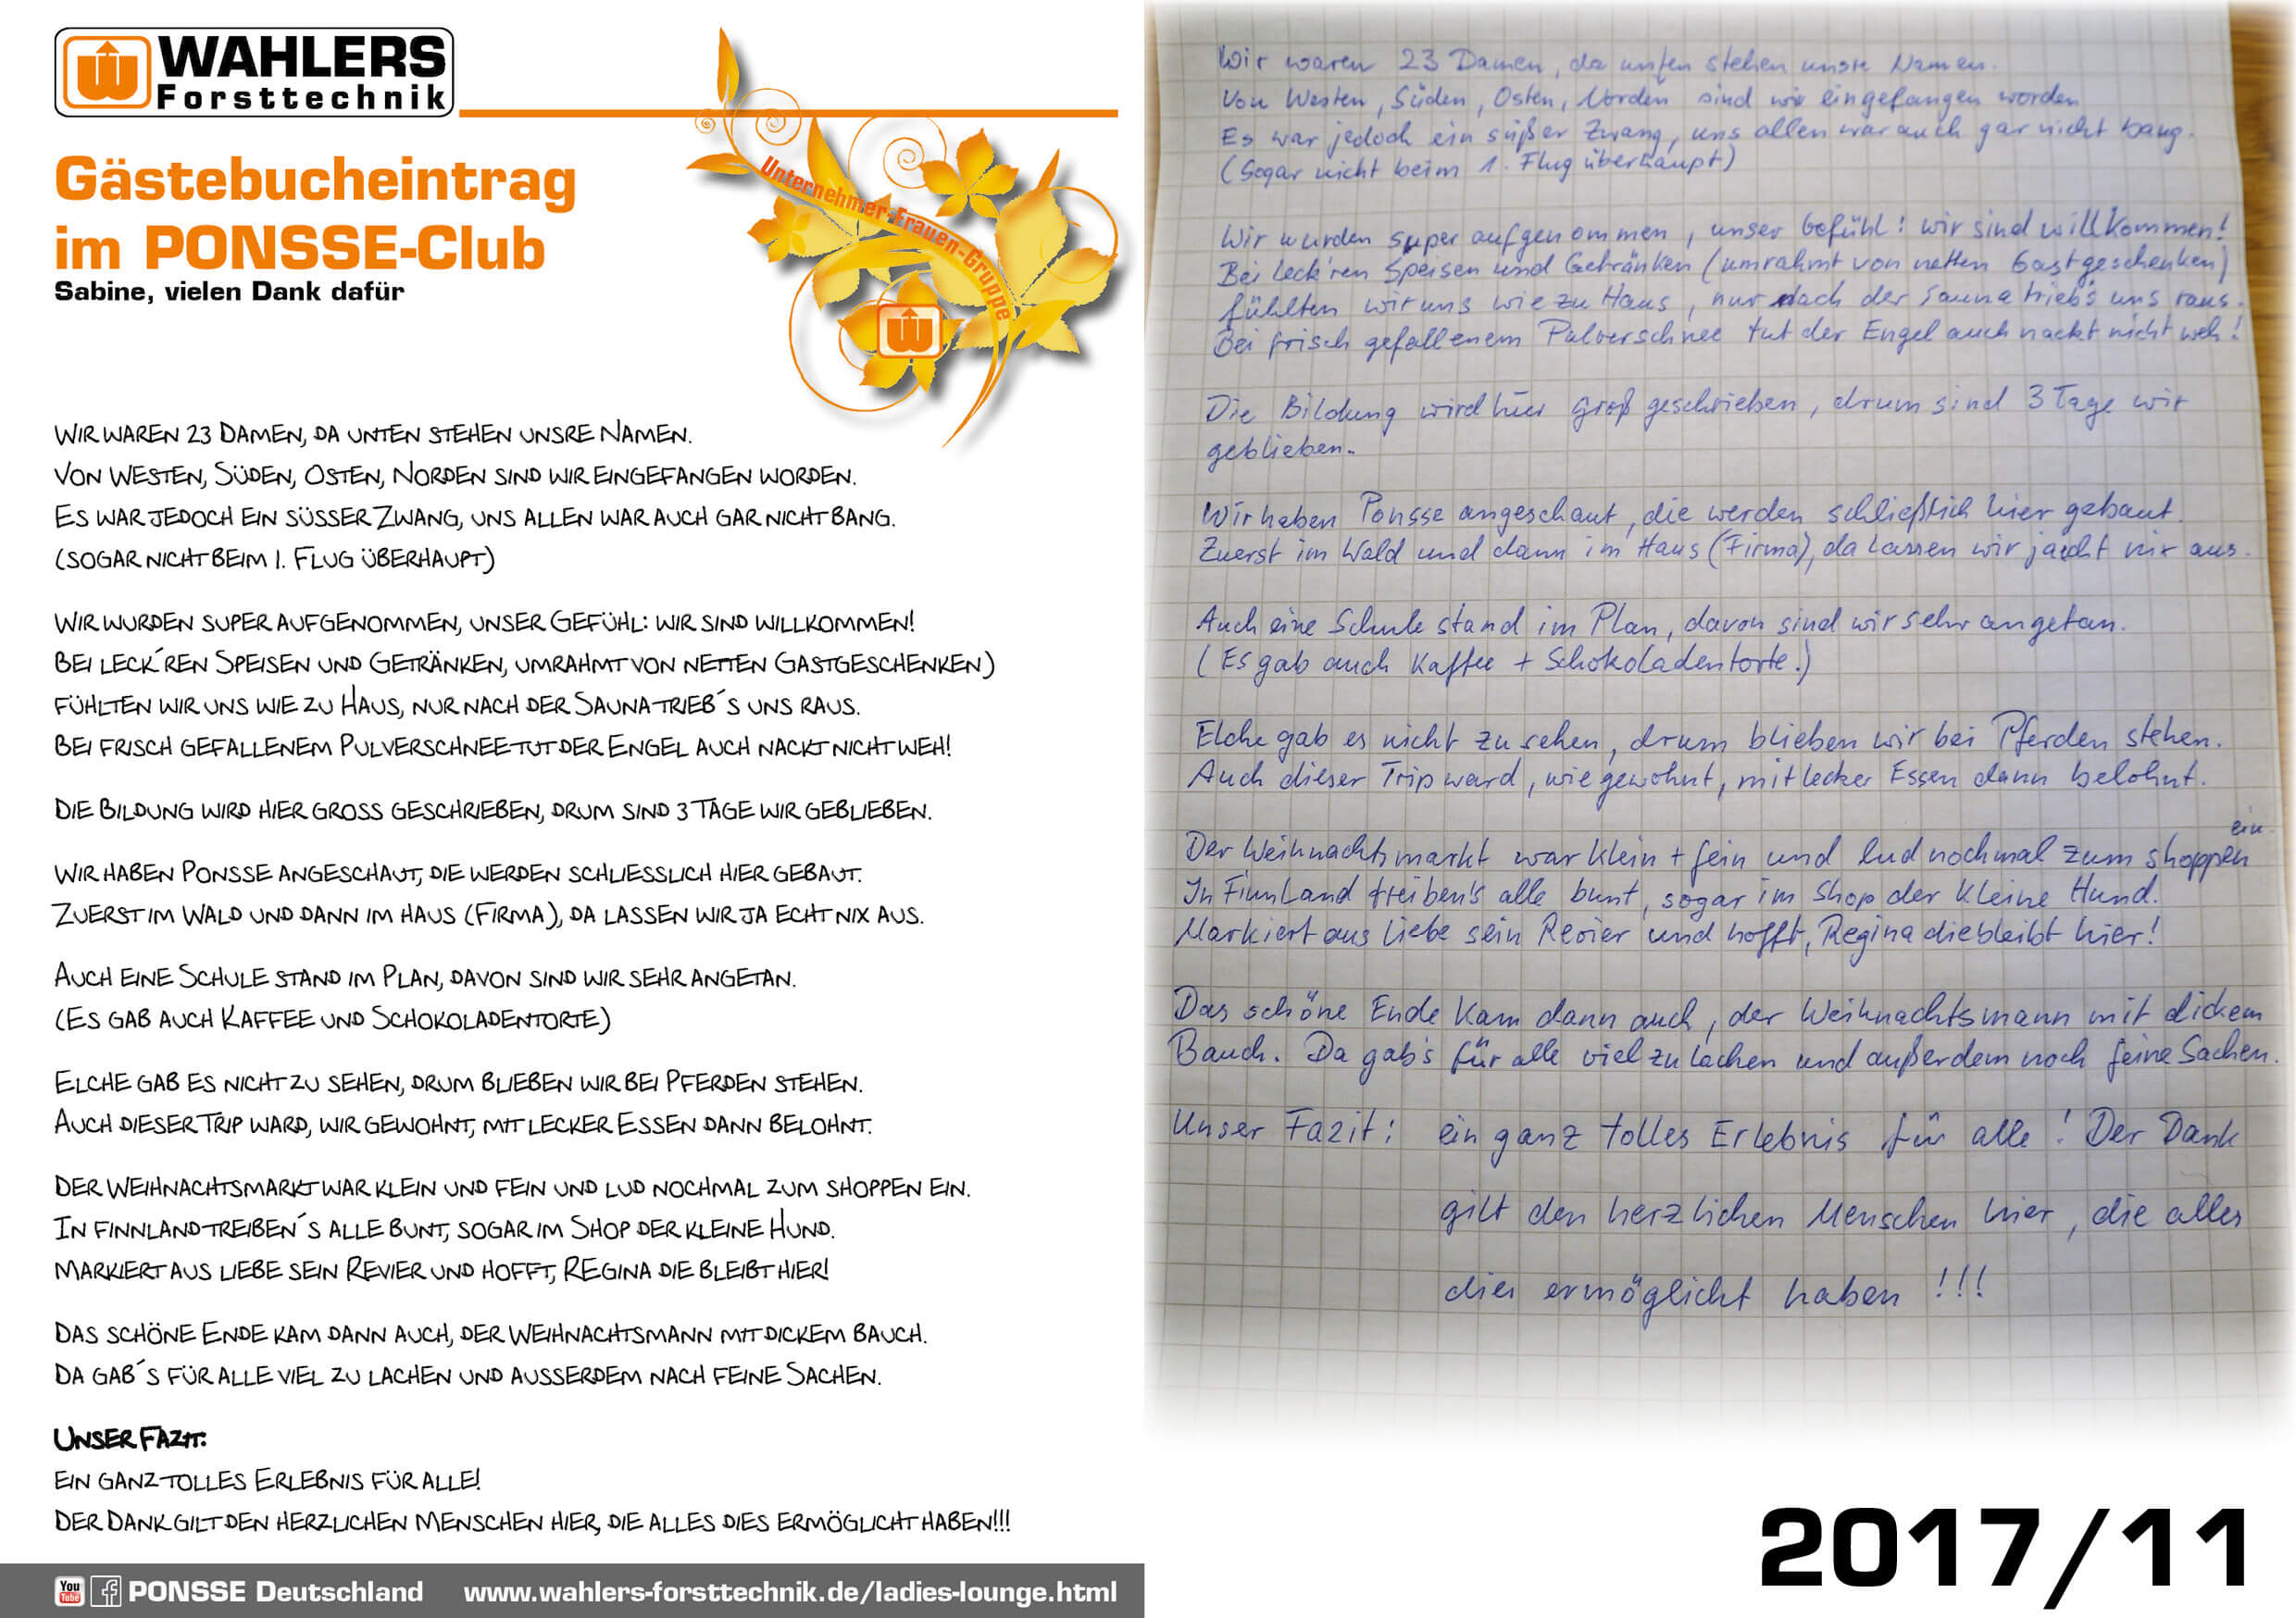 WAHLERS
Forsttechnik
Gästebucheintrag
im PONSSE-Club
Sabine, vielen Dank dafür
Unternehmer-Frauen-Gruppe
WIR WAREN 23 DAMEN, DA UNTEN STEHEN UNSRE NAMEN.
VON WESTEN, SÜDEN, OSTEN, NORDEN SIND WIR EINGEFANGEN WORDEN.
ES WAR JEDOCH EIN SÜSSER ZWANG, UNS ALLEN WAR AUCH GAR NICHT BANG.
(SOGAR NICHT BEIM 1. FLUG ÜBERHAUPT)
WIR WURDEN SUPER AUFGENOMMEN, UNSER GEFÜHL: WIR SIND WILLKOMMEN!
BEI LECK´REN SPEISEN UND GETRÄNKEN, UMRAHMT VON NETTEN GASTGESCHENKEN)
FÜHLTEN WIR UNS WIE ZU HAUS, NUR NACH DER SAUNA TRIEB´S UNS RAUS.
BEI FRISCH GEFALLENEM PULVERSCHNEE TUT DER ENGEL AUCH NACKT NICHT WEH!
DIE BILDUNG WIRD HIER GROSS GESCHRIEBEN, DRUM SIND 3 TAGE WIR GEBLIEBEN.
WIR HABEN PONSSE ANGESCHAUT, DIE WERDEN SCHLIESSLICH HIER GEBAUT.
ZUERST IM WALD UND DANN IM HAUS (FIRMA), DA LASSEN WIR JA ECHT NIX AUS.
AUCH EINE SCHULE STAND IM PLAN, DAVON SIND WIR SEHR ANGETAN.
(ES GAB AUCH KAFFEE UND SCHOKOLADENTORTE)
ELCHE GAB ES NICHT ZU SEHEN, DRUM BLIEBEN WIR BEI PFERDEN STEHEN.
AUCH DIESER TRIP WARD, WIR GEWOHNT, MIT LECKER ESSEN DANN BELOHNT.
DER WEIHNACHTSMARKT WAR KLEIN UND FEIN UND LUD NOCHMAL ZUM SHOPPEN EIN.
IN FINNLAND TREIBEN´S ALLE BUNT, SOGAR IM SHOP DER KLEINE HUND.
MARKIERT AUS LIEBE SEIN REVIER UND HOFFT, REGINA DIE BLEIBT HIER!
DAS SCHÖNE ENDE KAM DANN AUCH, DER WEIHNACHTSMANN MIT DICKEM BAUCH.
DA GAB´S FÜR ALLE VIEL ZU LACHEN UND AUSSERDEM NACH FEINE SACHEN.
UNSER FAZIT:
EIN GANZ TOLLES ERLEBNIS FÜR ALLE!
DER DANK GILT DEN HERZLICHEN MENSCHEN HIER, DIE ALLES DIES ERMÖGLICHT HABEN!!!
You Tube f PONSSE Deutschland www.wahlers-forsttechnik.de/ladies-lounge.html
Wir waren 23 Damen, da unten stehen unsre Namen.
Von Westen, Süden, Osten, Norden sind wir eingefangen worden
Es war jedoch ein süßer Zwang, uns allen war auch gar nicht bang.
(Sogar nicht beim 1. Flug überhaupt)
Wir wurden super aufgenommen, unser Gefühl: wir sind willkommen!
Bei leck'ren Speisen und Getränken (umrahmt von netten Gastgeschenken)
fühlten wir uns wie zu Haus, nur nach der Sauna trieb's uns raus.
Bei frisch gefallenem Pulverschnee tut der Engel auch nackt nicht weh!
Die Bildung wird hier groß geschrieben, drum sind 3 Tage wir
geblieben.
Wir haben Ponsse angeschaut, die werden schließlich hier gebaut.
Zuerst im Wald und dann im Haus (Firma), da lassen wir ja echt nix aus.
Auch eine Schule stand im Plan, davon sind wir sehr angetan.
(Es gab auch Kaffee + Schokoladentorte.)
Elche gab es nicht zu sehen, drum blieben wir bei Pferden stehen.
Auch dieser Trip ward, wie gewohnt, mit lecker Essen dann belohnt.
Der Weihnachtsmarkt war klein + fein und lud nochmal zum shoppen ein.
In Finnland treiben's alle bunt, sogar im Shop der kleine Hund.
Markiert aus Liebe sein Revier und hofft, Regina die bleibt hier!
Das schöne Ende kam dann auch, der Weihnachtsmann mit dickem
Bauch. Da gab's für alle viel zu lachen und außerdem noch feine Sachen.
Unser Fazit: ein ganz tolles Erlebnis für alle! Der Dank
gilt den herzlichen Menschen hier, die alles
dies ermöglicht haben!!!
2017/11